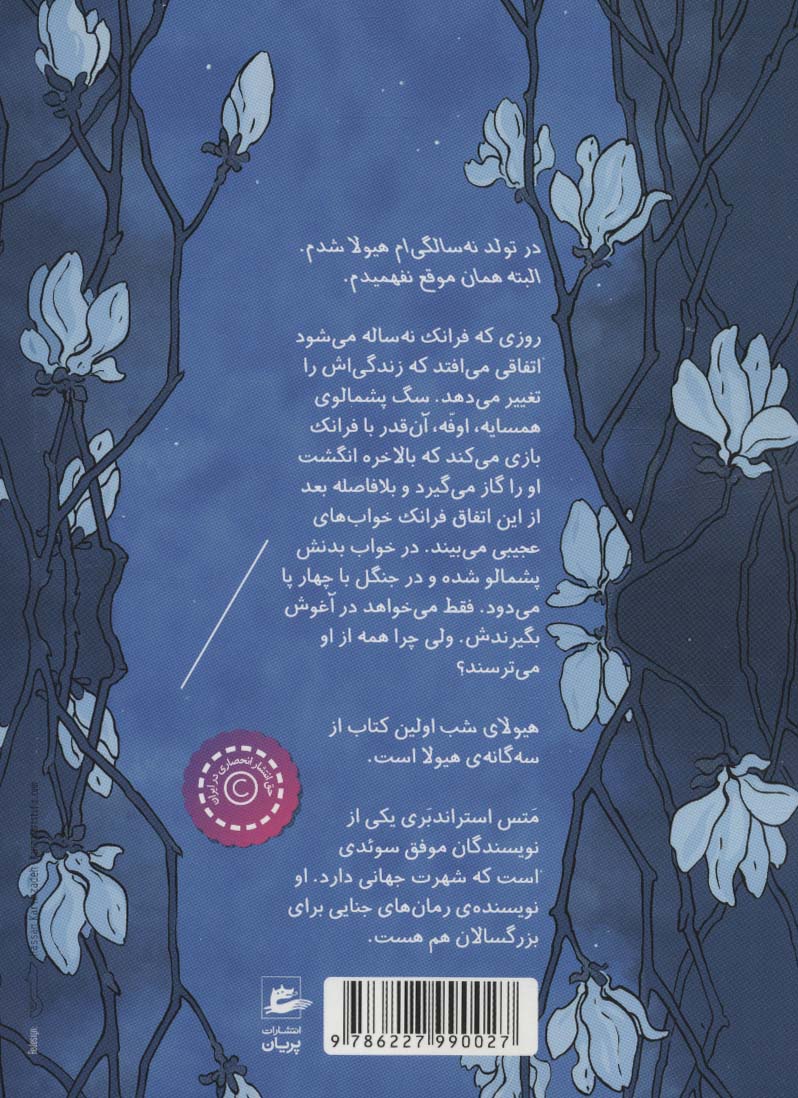 در تولد نه‌سالگی‌ام هیولا شدم.
البته همان موقع نفهمیدم.
روزی که فرانک نه‌ساله می‌شود
اتفاقی می‌افتد که زندگی‌اش را
تغییر می‌دهد. سگ پشمالوی
همسایه، اوفّه، آن‌قدر با فرانک
بازی می‌کند که بالاخره انگشت
او را گاز می‌گیرد و بلافاصله بعد
از این اتفاق فرانک خواب‌های
عجیبی می‌بیند. در خواب بدنش
پشمالو شده و در جنگل با چهار پا
می‌دود. فقط می‌خواهد در آغوش
بگیرندش. ولی چرا همه از او
می‌ترسند؟
هیولای شب اولین کتاب از
سه‌گانه‌ی هیولا است.
حق انتشار انحصاری در ایران
©
مَتس استراندبَری یکی از
نویسندگان موفق سوئدی
است که شهرت جهانی دارد. او
نویسنده‌ی رمان‌های جنایی برای
بزرگسالان هم هست.
انتشارات
پریان
9 786227 990027
Redesign: